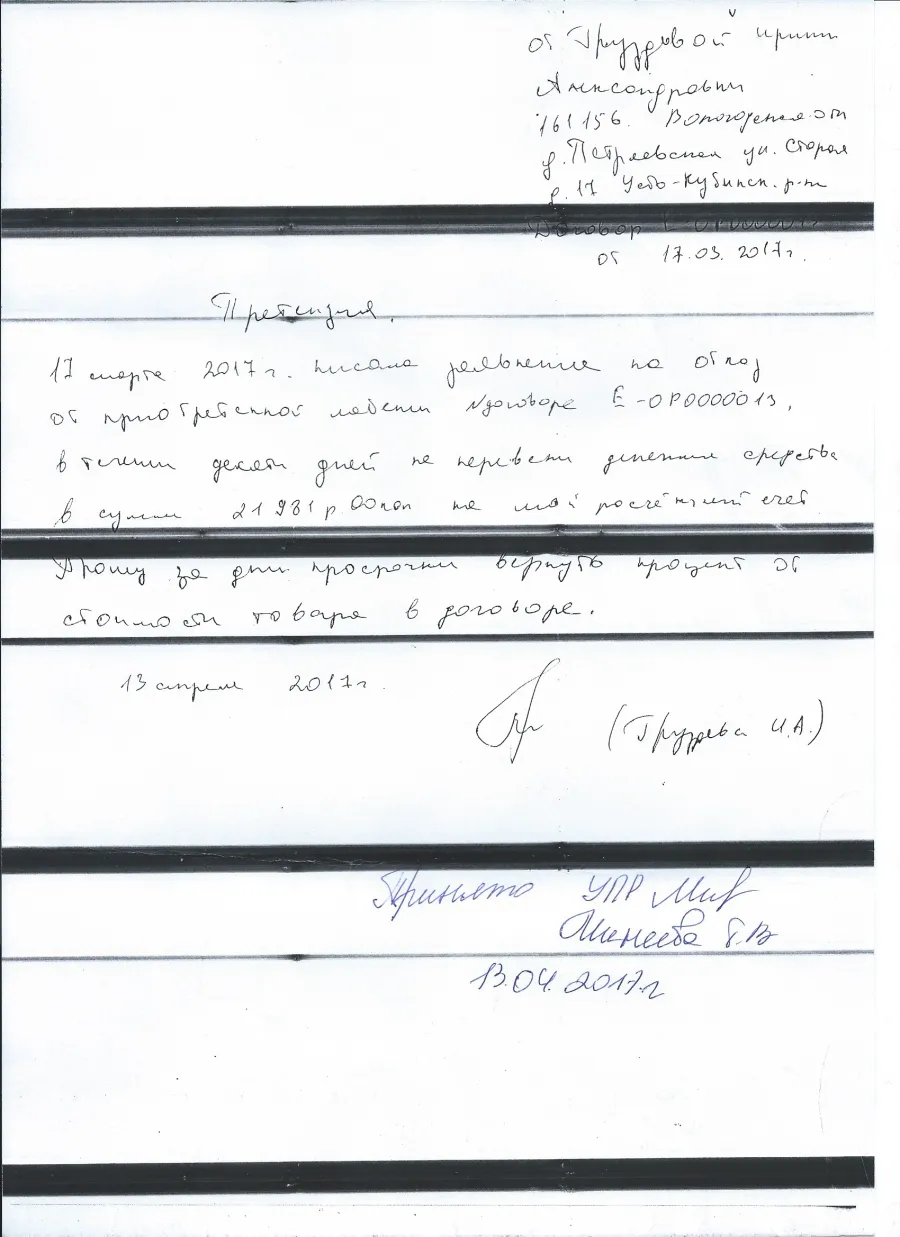 от Груздевой Ирины
Александровны
161156. Вологодская обл
д. Петряевская ул. Старая
д. 17 Усть-Кубинск. р-н
Договор Е-ОР0000013
от 17.03.2017г.
Претензия.
17 марта 2017г. писала заявление на отказ
от приобретенной мебели Nдоговора Е-ОР0000013,
в течении десяти дней не перевели денежные средства
в сумме 21981р.00коп на мой расчётный счет
Прошу за дни просрочки вернуть процент от
стоимости товара в договоре.
13 апреля 2017г.
(Груздева И.А.)
Принято УПР
Минеева Г.В
13.04.2017г